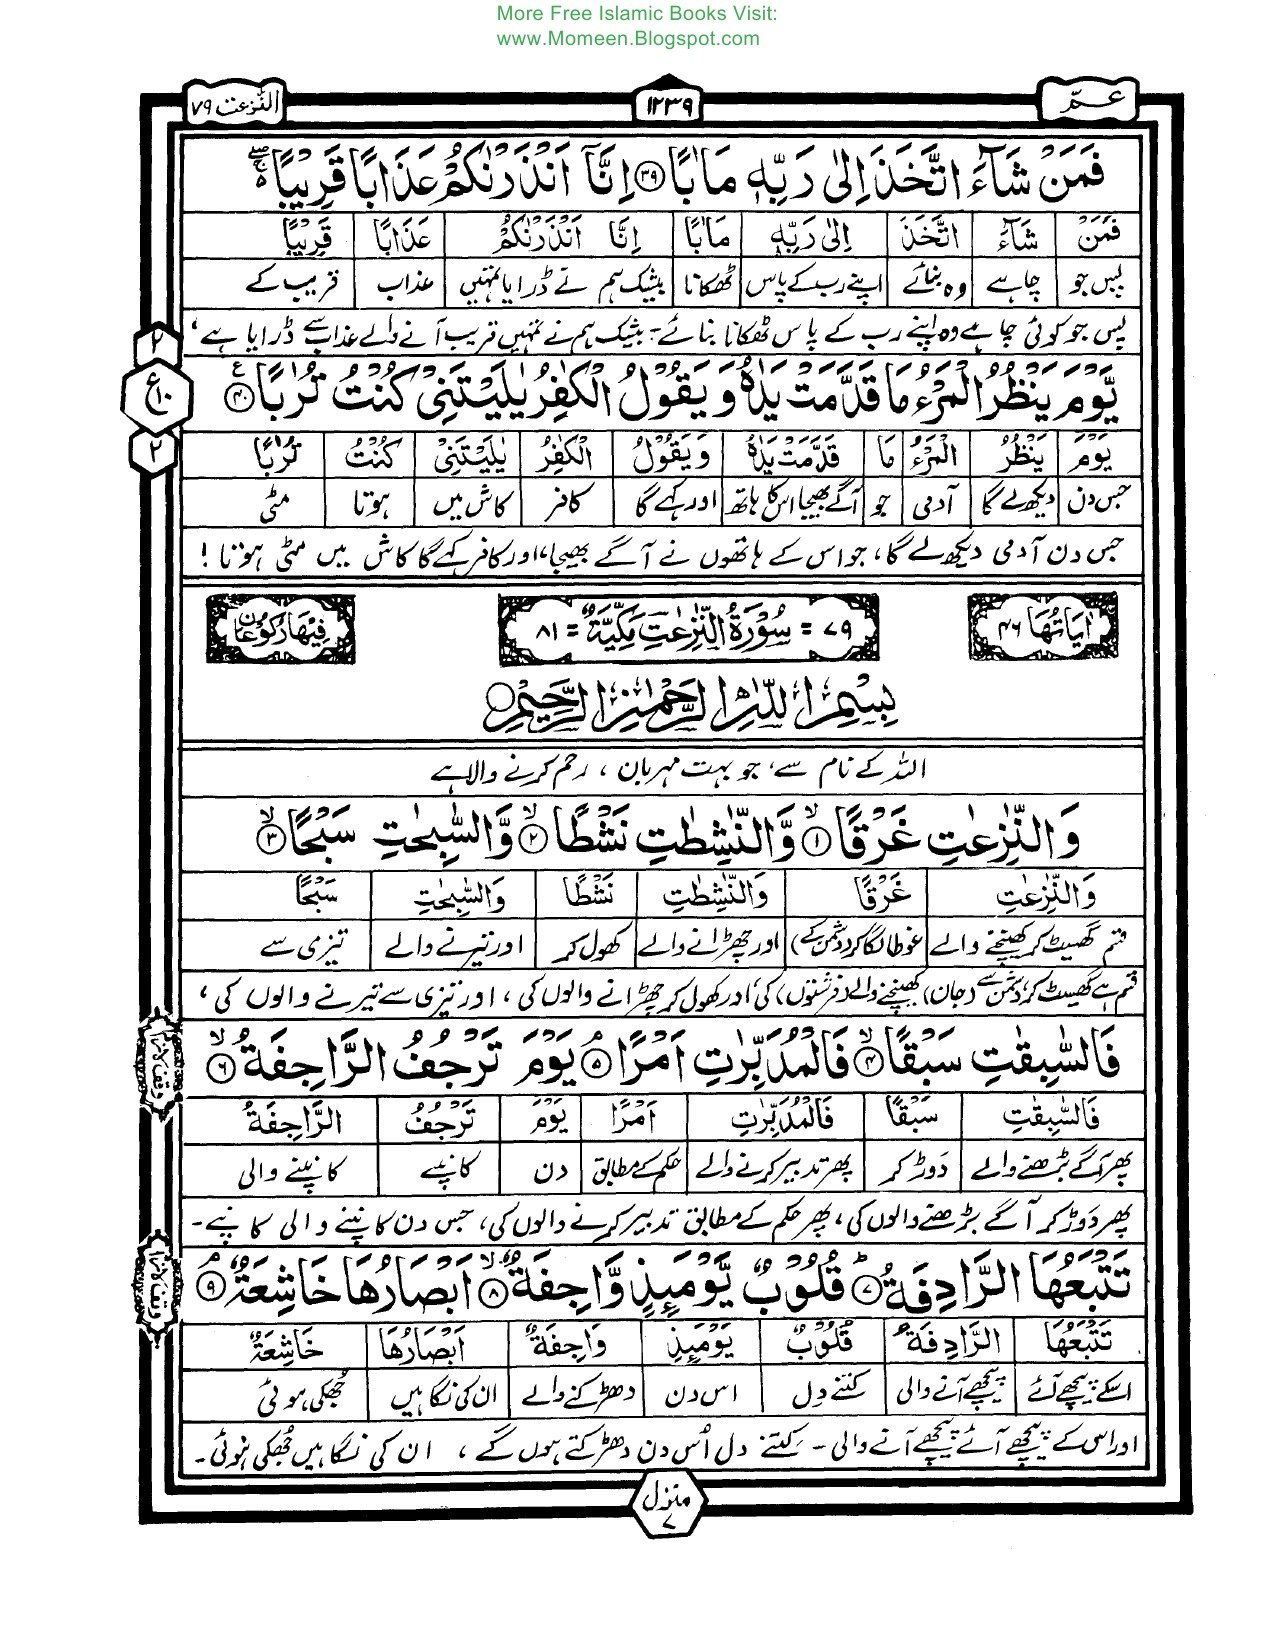 More Free Islamic Books Visit:
www.Momeen.Blogspot.com
عـمّ
١٢٣٩
النّٰزعٰت ٧٩
فَمَنْ شَآءَ اتَّخَذَ اِلٰى رَبِّهٖ مَاٰبًا ۝٣٩ اِنَّآ اَنْذَرْنٰكُمْ عَذَابًا قَرِيْبًا ۚۖ
فَمَنْ شَآءَ اتَّخَذَ اِلٰى رَبِّهٖ مَاٰبًا اِنَّآ اَنْذَرْنٰكُمْ عَذَابًا قَرِيْبًا
پس جو چاہے وہ بنائے اپنے رب کے پاس ٹھکانا بیشک ہم نے ڈرایا تمہیں عذاب قریب کے
پس جو کوئی چاہے وہ اپنے رب کے پاس ٹھکانا بنائے۔ بیشک ہم نے تمہیں قریب آنے والے عذاب سے ڈرایا ہے،
٢
ع ١٠
٢
يَّوْمَ يَنْظُرُ الْمَرْءُ مَا قَدَّمَتْ يَدٰهُ وَيَقُوْلُ الْكٰفِرُ يٰلَيْتَنِيْ كُنْتُ تُرٰبًا ۝٤٠ ع
يَوْمَ يَنْظُرُ الْمَرْءُ مَا قَدَّمَتْ يَدٰهُ وَيَقُوْلُ الْكٰفِرُ يٰلَيْتَنِيْ كُنْتُ تُرٰبًا
جس دن دیکھ لے گا آدمی جو آگے بھیجا اس کا ہاتھ اور کہے گا کافر کاش میں ہوتا مٹی
جس دن آدمی دیکھ لے گا، جو اس کے ہاتھوں نے آگے بھیجا، اور کافر کہے گا کاش میں مٹی ہوتا !
اٰيَاتُهَا ٤٦
٧٩ = سُوْرَةُ النّٰزِعٰتِ مَكِّيَّةٌ = ٨١
فِيْهَا رُكُوْعَانِ
بِسْمِ اللّٰهِ الرَّحْمٰنِ الرَّحِيْمِ
اللہ کے نام سے، جو بہت مہربان ، رحم کرنے والا ہے
وَالنّٰزِعٰتِ غَرْقًا ۝١ۙ وَّالنّٰشِطٰتِ نَشْطًا ۝٢ۙ وَّالسّٰبِحٰتِ سَبْحًا ۝٣ۙ
وَالنّٰزِعٰتِ غَرْقًا وَالنّٰشِطٰتِ نَشْطًا وَالسّٰبِحٰتِ سَبْحًا
قسم گھسیٹ کر کھینچنے والے غوطا لگا کر (دشمن کے) اور چھڑانے والے کھول کر اور تیرنے والے تیزی سے
قسم ہے گھسیٹ کر، دشمن سے (جان) کھینچنے والے (فرشتوں) کی، اور کھول کر چھڑانے والوں کی ، اور تیزی سے تیرنے والوں کی ،
فَالسّٰبِقٰتِ سَبْقًا ۝٤ۙ فَالْمُدَبِّرٰتِ اَمْرًا ۝٥ۘ يَوْمَ تَرْجُفُ الرَّاجِفَةُ ۝٦ۙ
فَالسّٰبِقٰتِ سَبْقًا فَالْمُدَبِّرٰتِ اَمْرًا يَوْمَ تَرْجُفُ الرَّاجِفَةُ
پھر آگے بڑھنے والے دَوڑ کر پھر تدبیر کرنے والے حکم کے مطابق دن کانپے کانپنے والی
پھر دَوڑ کر آگے بڑھنے والوں کی، پھر حکم کے مطابق تدبیر کرنے والوں کی، جس دن کانپنے والی کانپے۔
تَتْبَعُهَا الرَّادِفَةُ ۝٧ۭ قُلُوْبٌ يَّوْمَىِٕذٍ وَّاجِفَةٌ ۝٨ۙ اَبْصَارُهَا خَاشِعَةٌ ۝٩ۘ
تَتْبَعُهَا الرَّادِفَةُ قُلُوْبٌ يَوْمَىِٕذٍ وَاجِفَةٌ اَبْصَارُهَا خَاشِعَةٌ
اسکے پیچھے آئے پیچھے آنے والی کتنے دل اس دن دھڑکنے والے ان کی نگاہیں جُھکی ہوئی
اور اس کے پیچھے آئے پیچھے آنے والی ۔ کتنے دل اُس دن دھڑکتے ہوں گے ، ان کی نگاہیں جُھکی ہوئی۔
منزل ٧